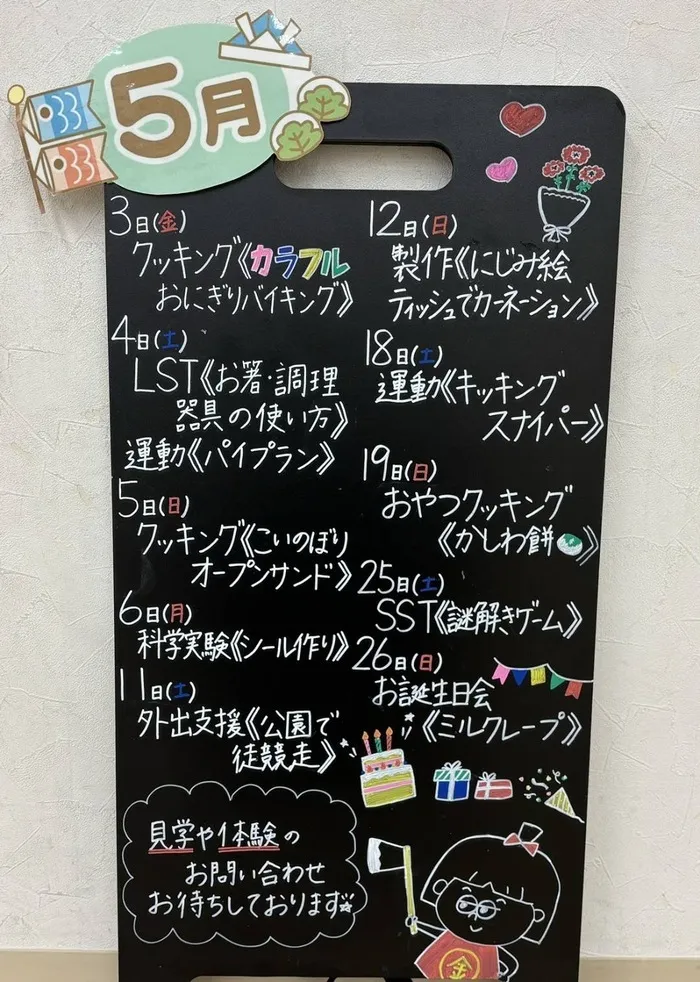 5月
3日(金)
クッキング《カラフル
おにぎりバイキング》
4日(土)
LST《お箸・調理
器具の使い方》
運動《パイプラン》
5日(日)
クッキング《こいのぼり
オープンサンド》
6日(月)
科学実験《シール作り》
11日(土)
外出支援《公園で
徒競走》
12日(日)
製作《にじみ絵
ティッシュでカーネーション》
18日(土)
運動《キッキング
スナイパー》
19日(日)
おやつクッキング
《かしわ餅》
25日(土)
SST《謎解きゲーム》
26日(日)
お誕生日会
《ミルクレープ》
見学や体験の
お問い合わせ
お待ちしております☆
金